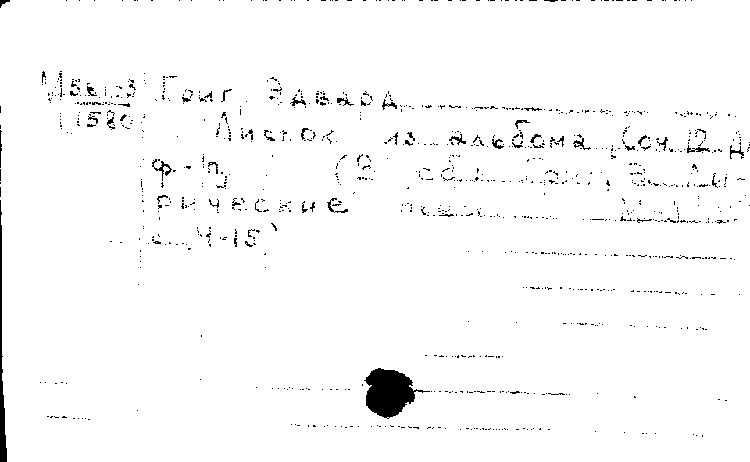 Григ, Эдвард
1580 Листок из альбома, Соч. 12 Д
ф-п (В сб.: Григ, Э. Ли-
рические
с. 4-15)